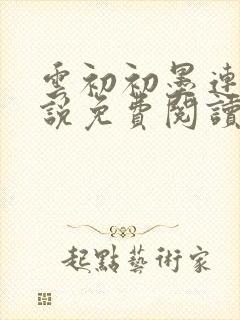 雲初初墨連
說免費閱讀
起點藝術家